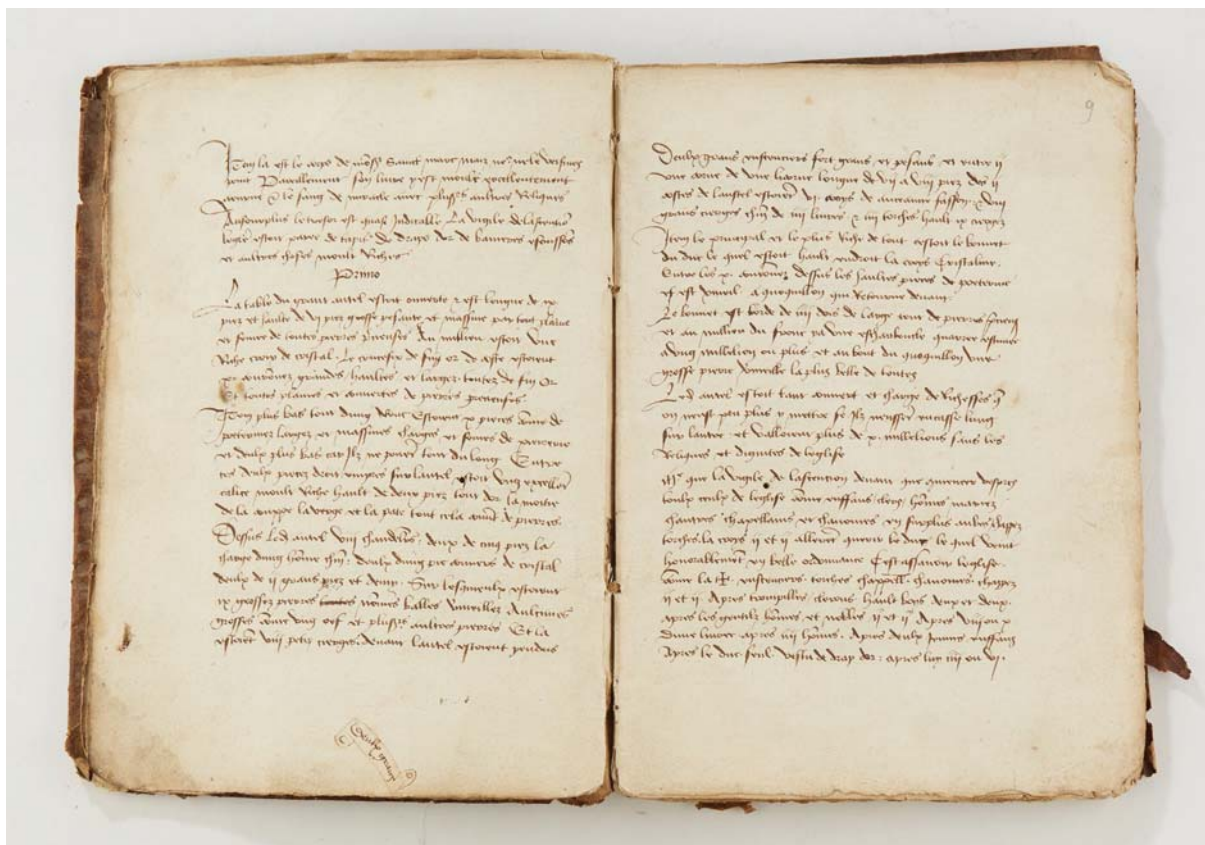 Item la est le corps de monss Sainct marc mais ne le veismes
point Pareillement son livre y est moult excellentement
aourne et le sang de miracle avec plusrs aultres Reliques
Ausourplus le tresor est quasi Inditable La vigile de lascention
leglise estoit paree de tapis De drapz dor de banieres escussons
et aultres choses moult Riches
Primo
La table du grant autel estoit ouverte et est longue de ix
piez et haulte de vi piez grosse pesante et massive par tout
et semee de toutes pierres precieuses Au millieu estoit une
Riche croix de cristal Le crucefix de fin or De costé estoient
x couronnes grandes haultes et larges toutes de fin or
Et toutes plaines et couvertes de pierres precieuses
Item plus bas tout dung Estoient x pieces comme de
poictrines larges et massives charges et semees de pierrerie
et deulx plus bas car Ilz ne povoient tout du long Entre
ces deulx pieces droit empres sur lautel estoit ung excellent
calice moult riche hault de deux piez tout dor la moitie
de la couppe la verge et la pate tout cela couvert de pierres
Dessus led autel viii chandeliers deux de cinq piez la
charge dung homme chun deulx dung pie couvers de cristal
deulx de ii grans piez et demy Sur lesquelz estoient
ix grosses pierres nommes balles vineilles Aulcunes
grosses comme ung oef et plusrs aultres pierres Et la
estoient viii petis cierges devant lautel estoient pendus
Deulx grans
9
Deulx grans encensiers fort grans et pesans et entre ii
une corne de une licorne longue de vii a viii piez des ii
costes de lautel estoient vi corps de cuirance fasson Deux
grans cierges chun de iii livres et iiii torches hault ix cierges
Item le principal et le plus Riche de tout cestoit le bonnet
du duc le quel estoit hault endroit la croix cristaline
Entre les x couronnes dessus les haultes pieces de poictrine
et est vermeil a quoquillon qui Retourne devant
Le bonnet est borde de iiii dois de large tout de pierres fines
et au millieu du front pa une escharboucle quarree estimee
a dung millelion ou plus et au bout du quoquillon une
grosse pierre vermeille la plus belle de toutes
Led autel estoit tant couvert et charge de Richesses que
on neust peu plus y mettre se Ilz neussent encasse lung
sur lautre et valloient plus de x millelions sans les
Reliques et dignites de leglise
que la vigile de lascention devant que commencer vespres
toulx ceulx de leglise comme enffans clerez hommes mariez
chantres chappellains et chanoines en surplus aulbes chappes
torches la croix ii et ii allerent querir le duc le quel vint
honorablement en belle ordonnance Cest assavoir leglise
comme la encensiers torches chappell chanoines chappes
ii et ii Apres trompilles clerons hault boys deux et deux
apres les gentilz hommes et nobles ii et ii Apres viii ou x
dune livree apres iiii hommes Apres deulx jeunes enffans
Apres le duc seul vestu de drap dor apres luy iiii ou vi